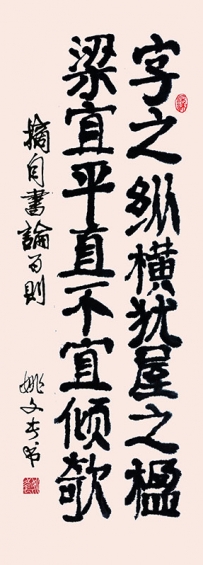 字之纵横犹屋之楹
梁宜平直不宜倾欹
摘自書論百則
姚文奎书